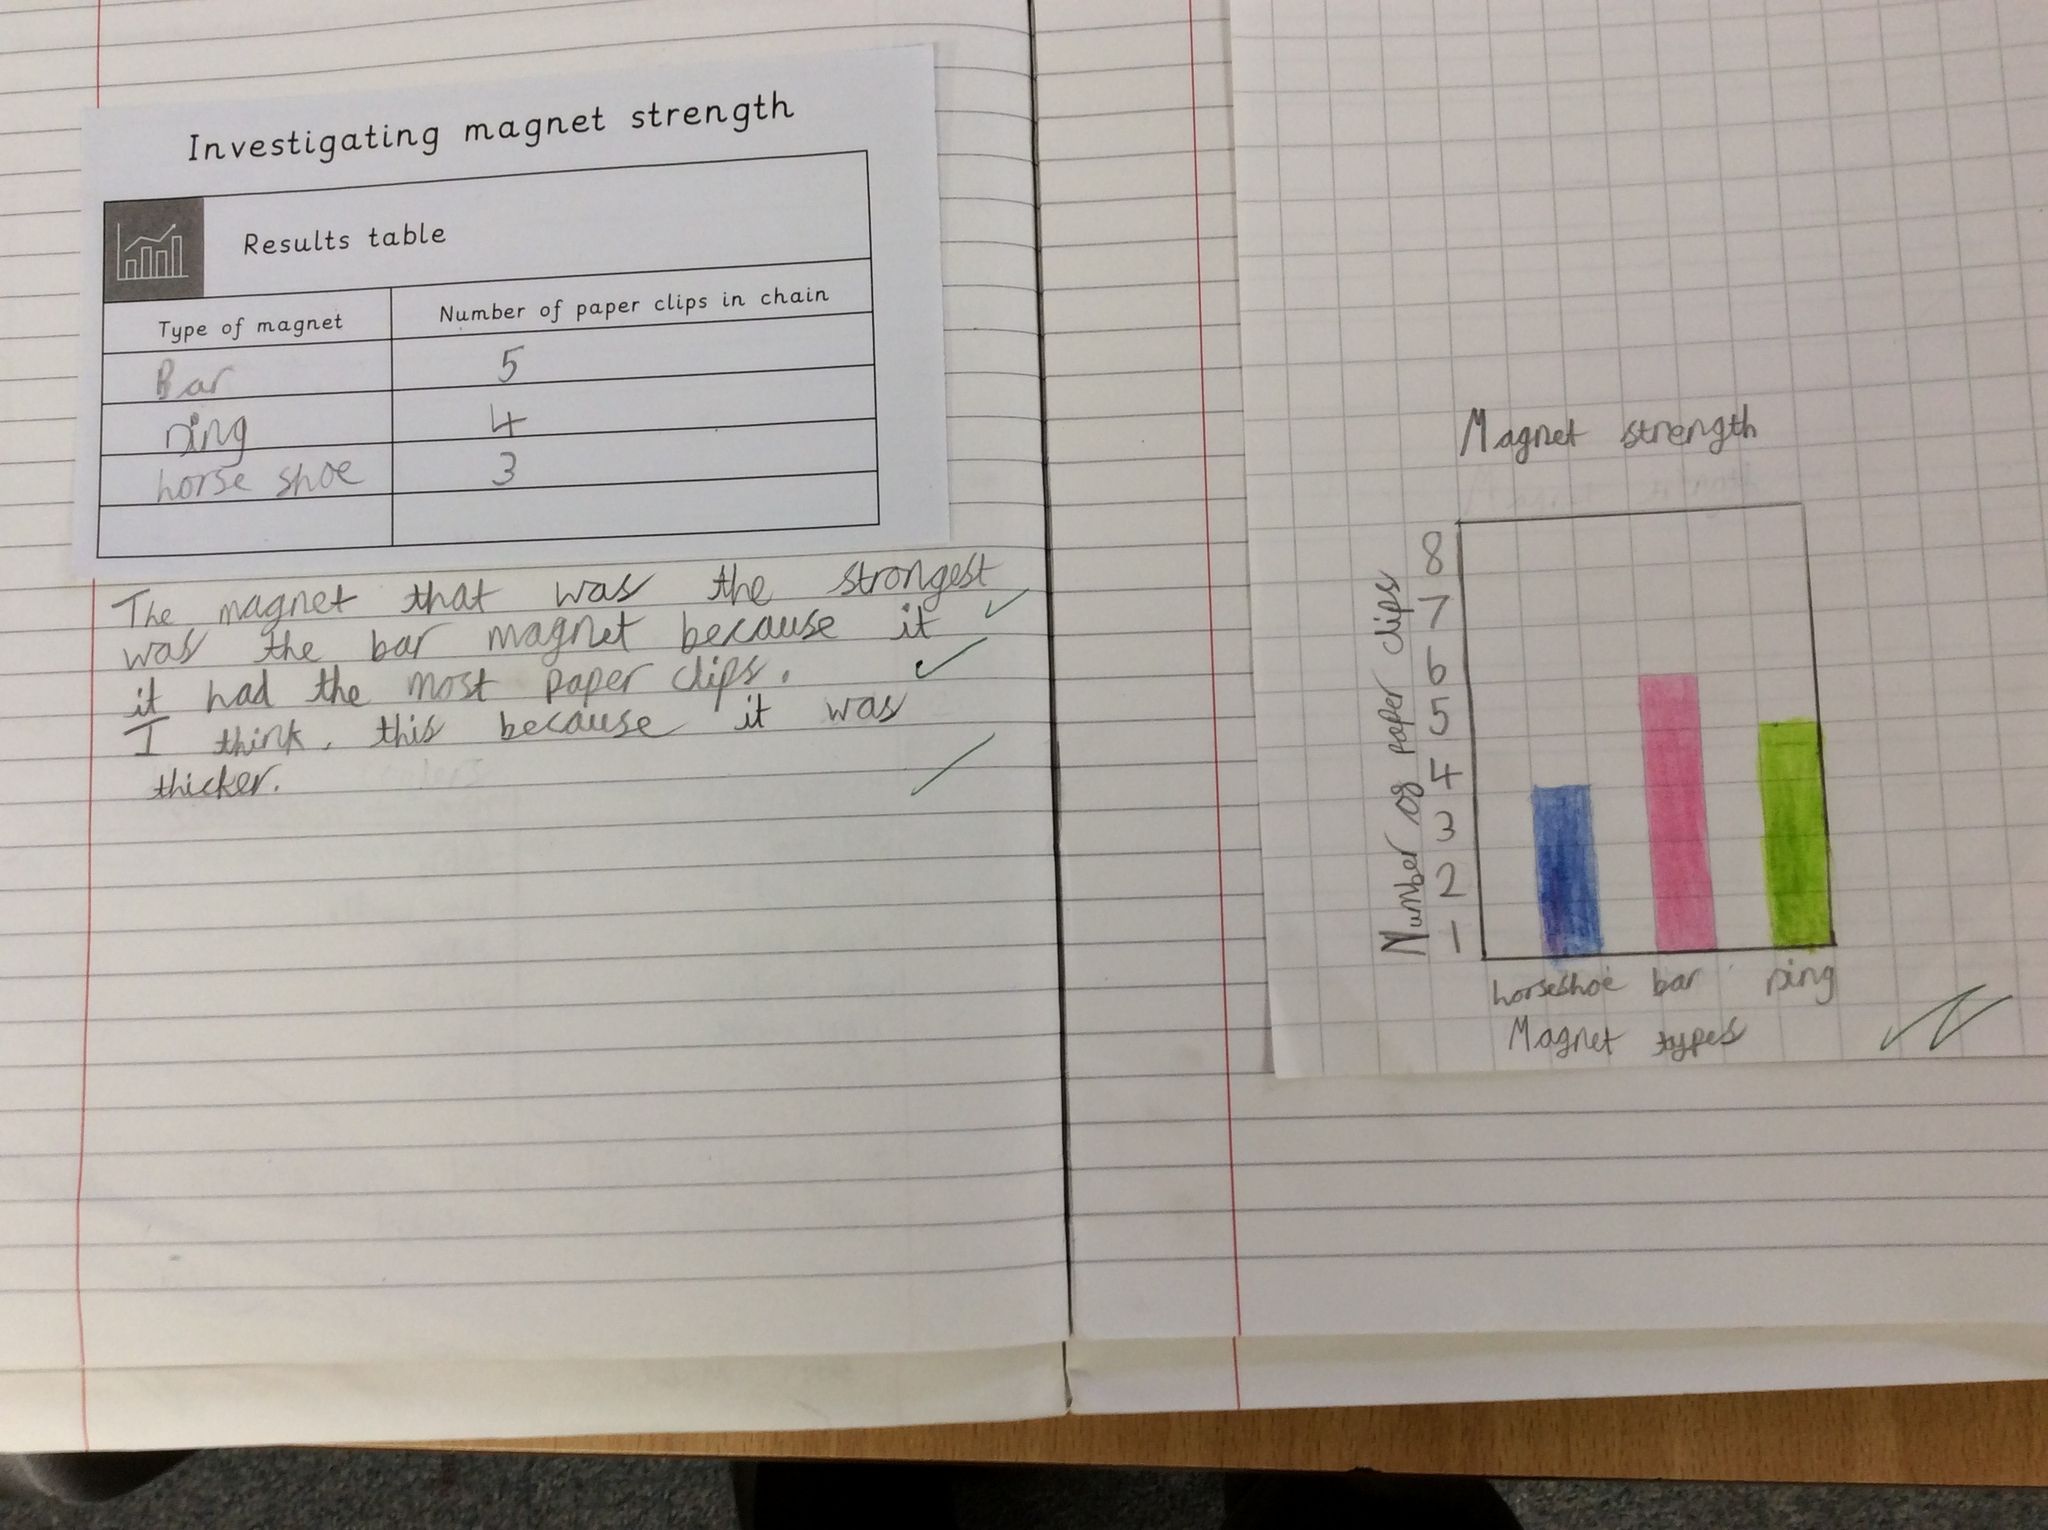 Investigating magnet strength
Results table
Type of magnet Number of paper clips in chain
Bar 5
ring 4
horse shoe 3
The magnet that was the strongest
was the bar magnet because it
it had the most paper clips.
I think, this because it was
thicker.
Magnet strength
Number of paper clips
8
7
6
5
4
3
2
1
horseshoe bar ring
Magnet types